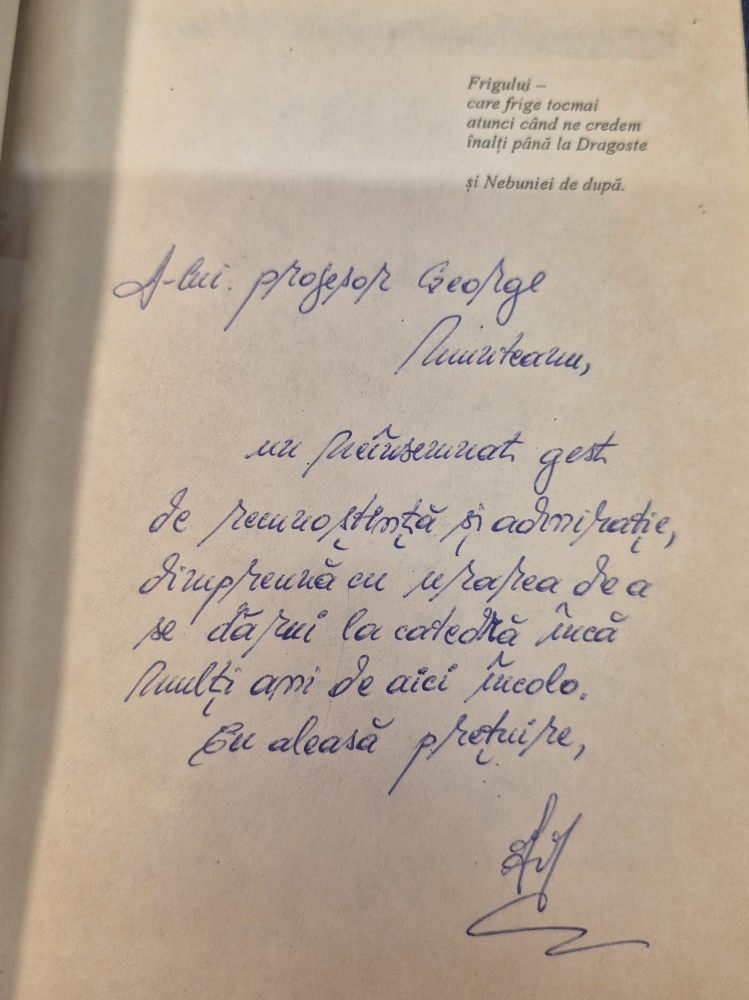 Frigului –
care frige tocmai
atunci când ne credem
înalți până la Dragoste
și Nebuniei de după.
D-lui. profesor George
Munteanu,
un neînsemnat gest
de recunoștință și admirație,
dimpreună cu urarea de a
se dărui la catedră încă
mulți ani de aici încolo.
Cu aleasă prețuire,